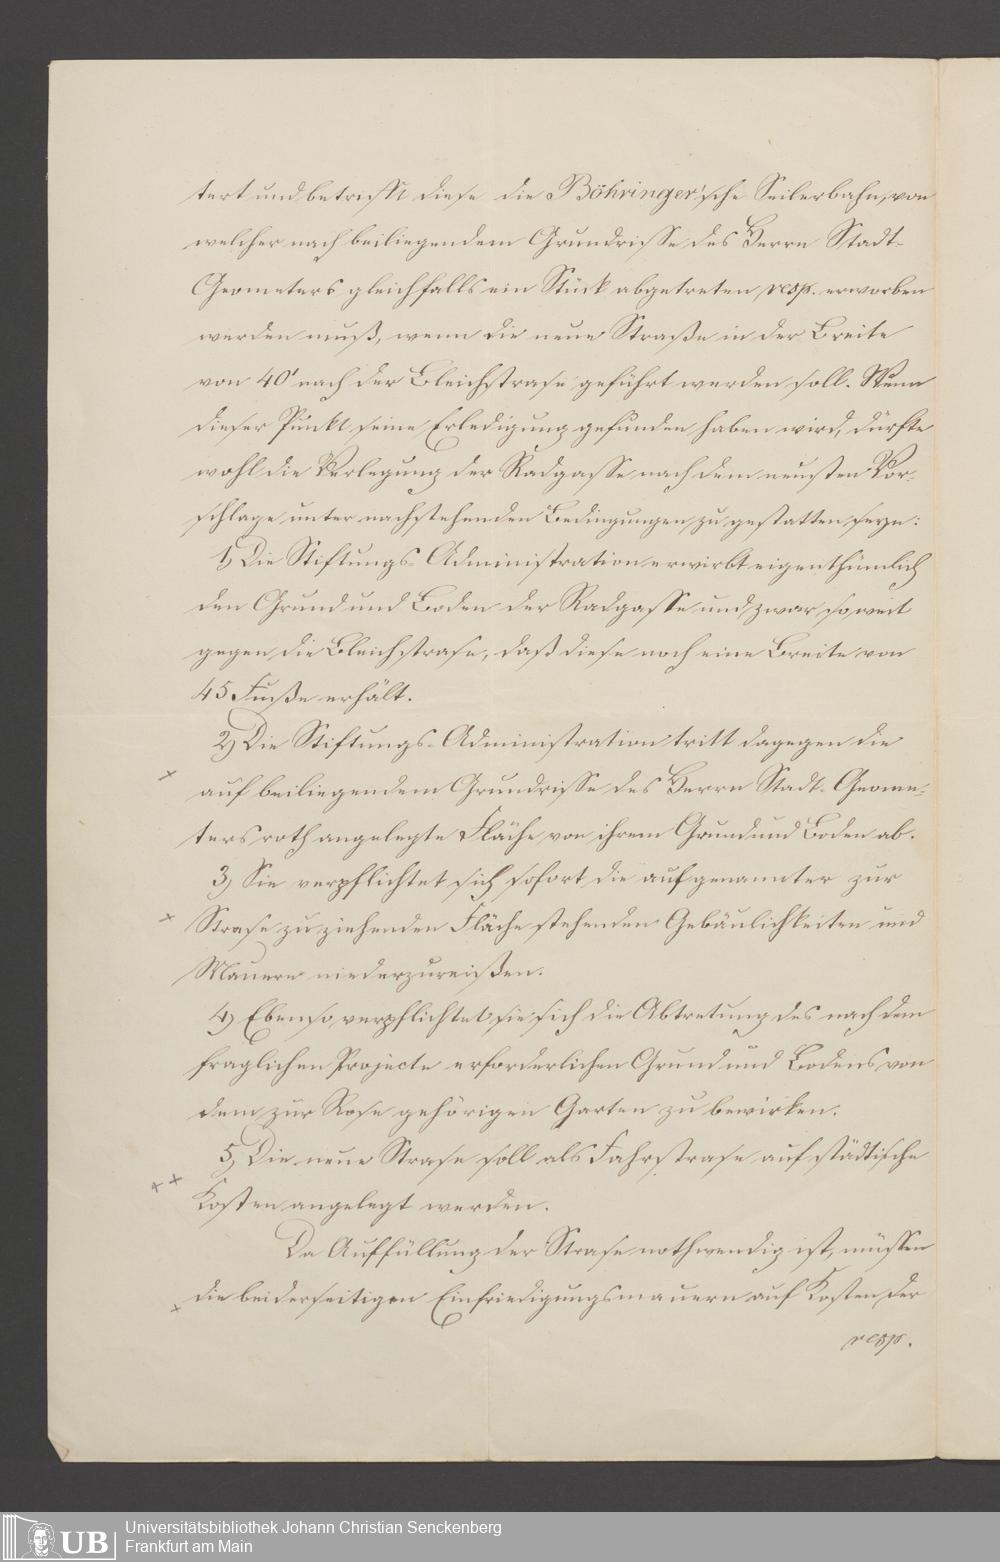 tert und betrifft diese die Böhringer'sche Seilerbahn, von
welcher nach beiliegendem Grundrisse des Herrn Stadt-
Geometers gleichfalls ein Stück abgetreten resp. erworben
werden muß, wenn die neue Straße in der Breite
von 40' nach der Bleichstrase geführt werden soll. Wenn
dieser Punkt seine Erledigung gefunden haben wird, dürfte
wohl die Verlegung der Radgasse nach dem neusten Vor-
schlage unter nachstehenden Bedingungen zu gestatten seyn:
1) Die Stiftungs-Administration erwirbt eigenthümlich
den Grund und Boden der Radgasse und zwar so weit
gegen die Bleichstrase, daß diese noch eine Breite von
45 Fuße erhält.
2) Die Stiftungs-Administration tritt dagegen die
auf beiliegendem Grundrisse des Herrn Stadt-Geome-
ters roth angelegte Fläche von ihrem Grund und Boden ab.
3) Sie verpflichtet sich sofort die auf genannter zur
Strase zu ziehenden Fläche stehenden Gebäulichkeiten und
Mauern niederzureißen.
4) Ebenso verpflichtet sie sich die Abtretung des nach dem
fraglichen Projecte erforderlichen Grund und Bodens von
dem zur Rose gehörigen Garten zu bewirken.
5) Die neue Strase soll als Fahrstrase auf städtische
Kosten angelegt werden.
Da Auffüllung der Strase nothwendig ist, müssen
die beiderseitigen Einfriedigungsmauern auf Kosten der
resp.
UB
Universitätsbibliothek Johann Christian Senckenberg
Frankfurt am Main